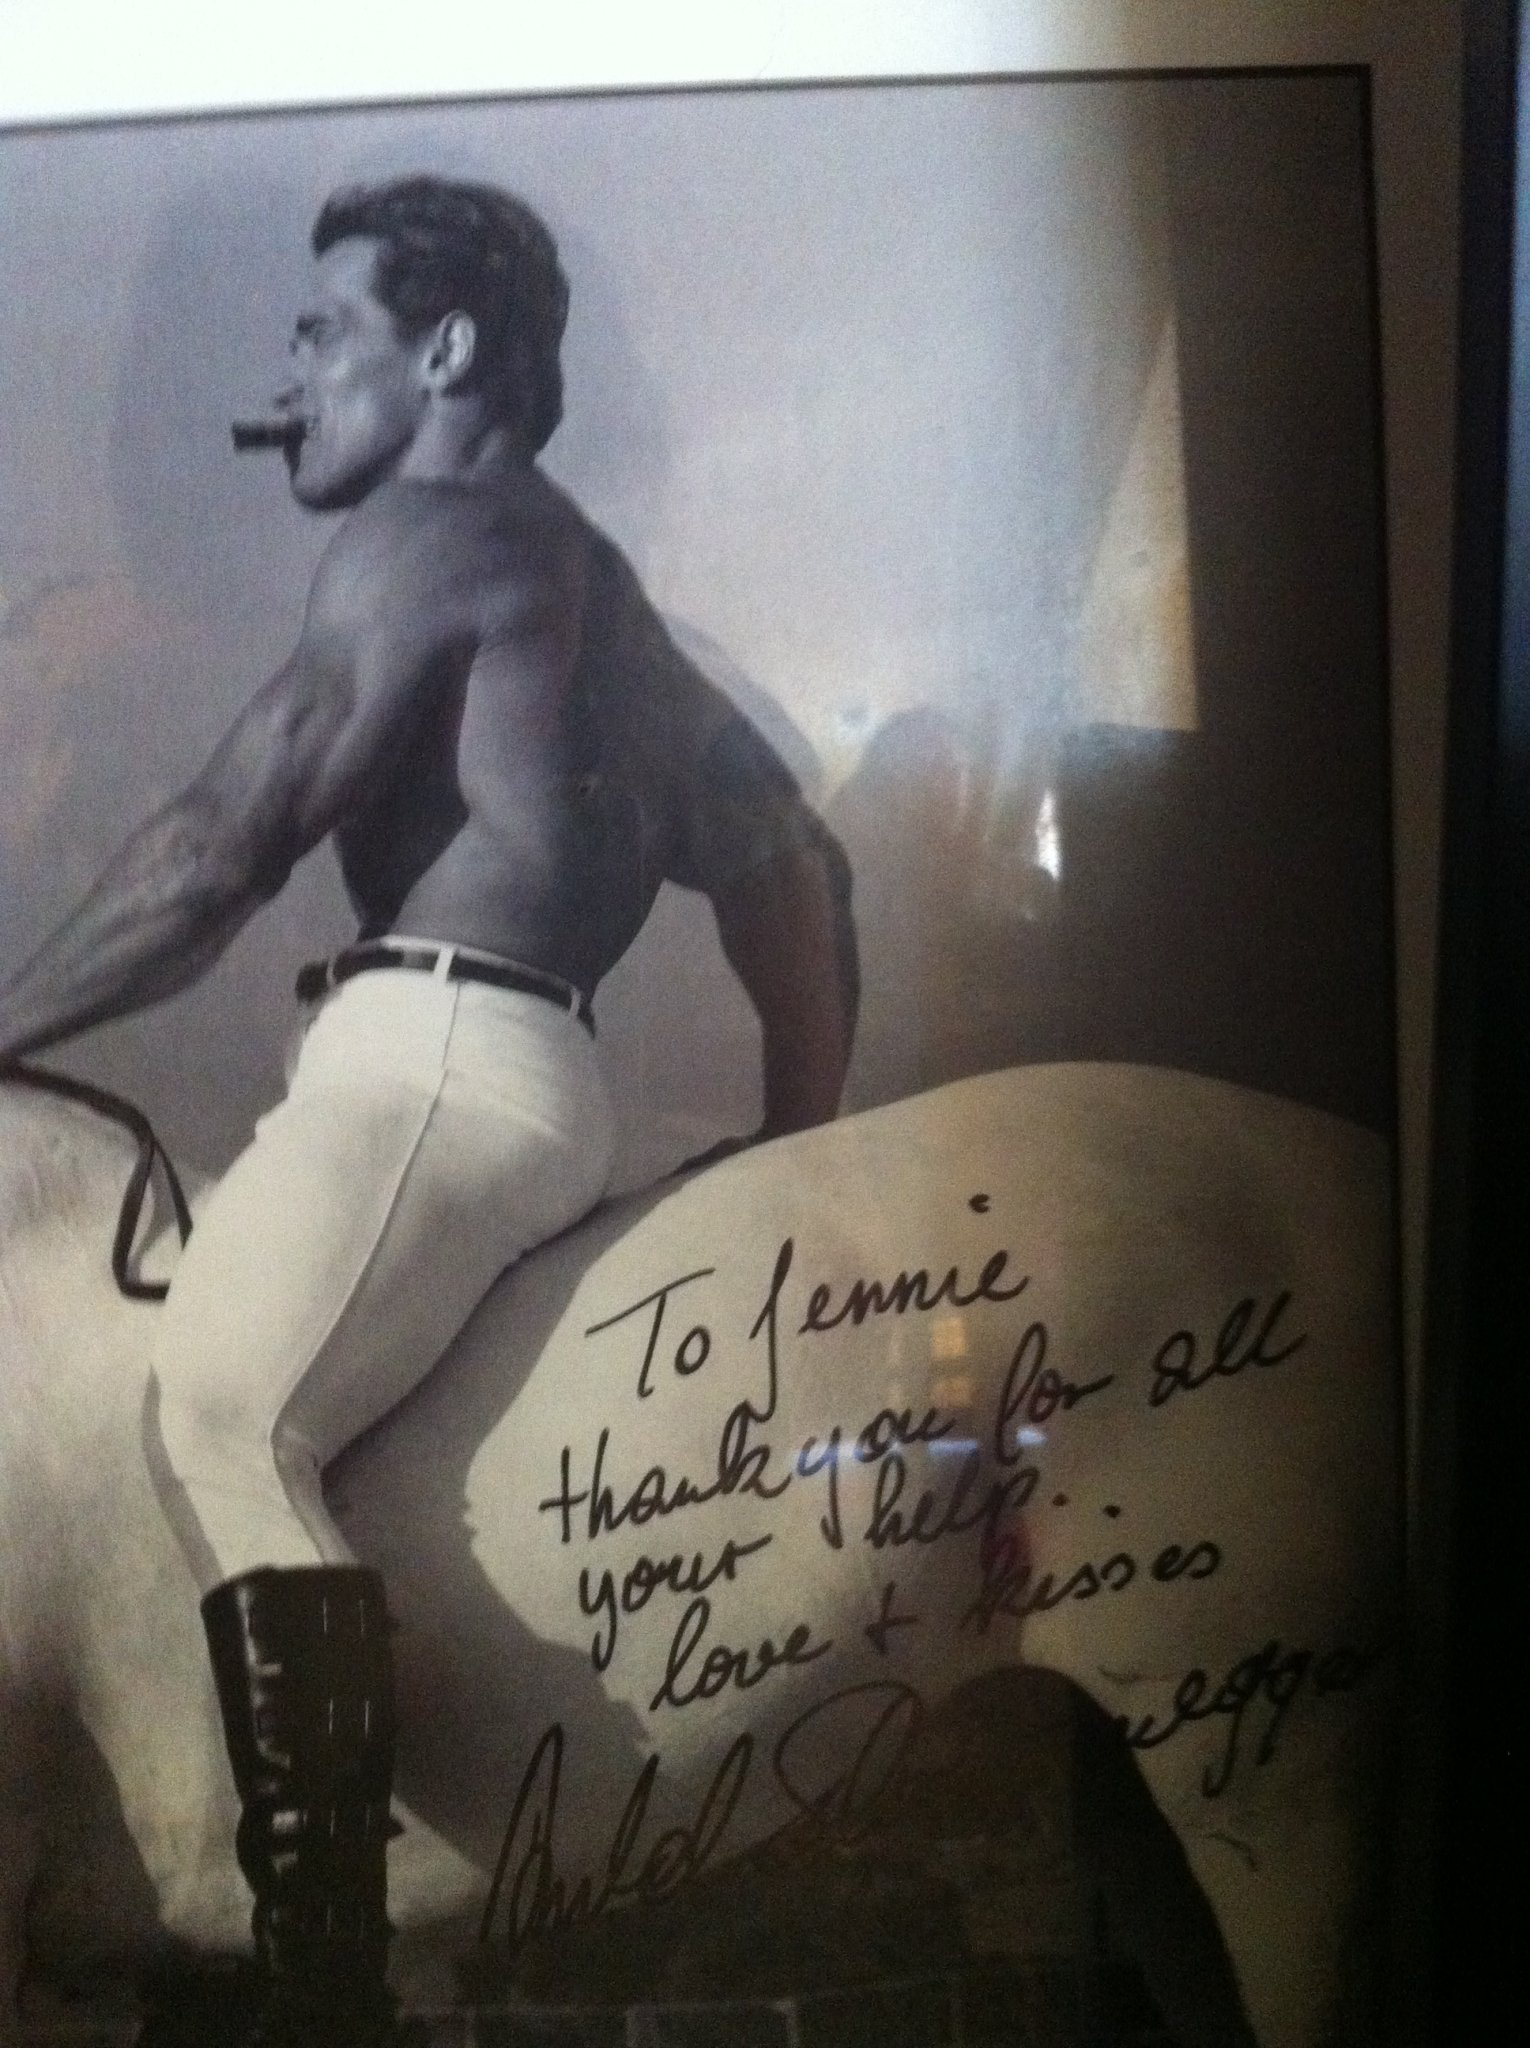 To Jennie
thank you for all
your help..
love + kisses
Arnold